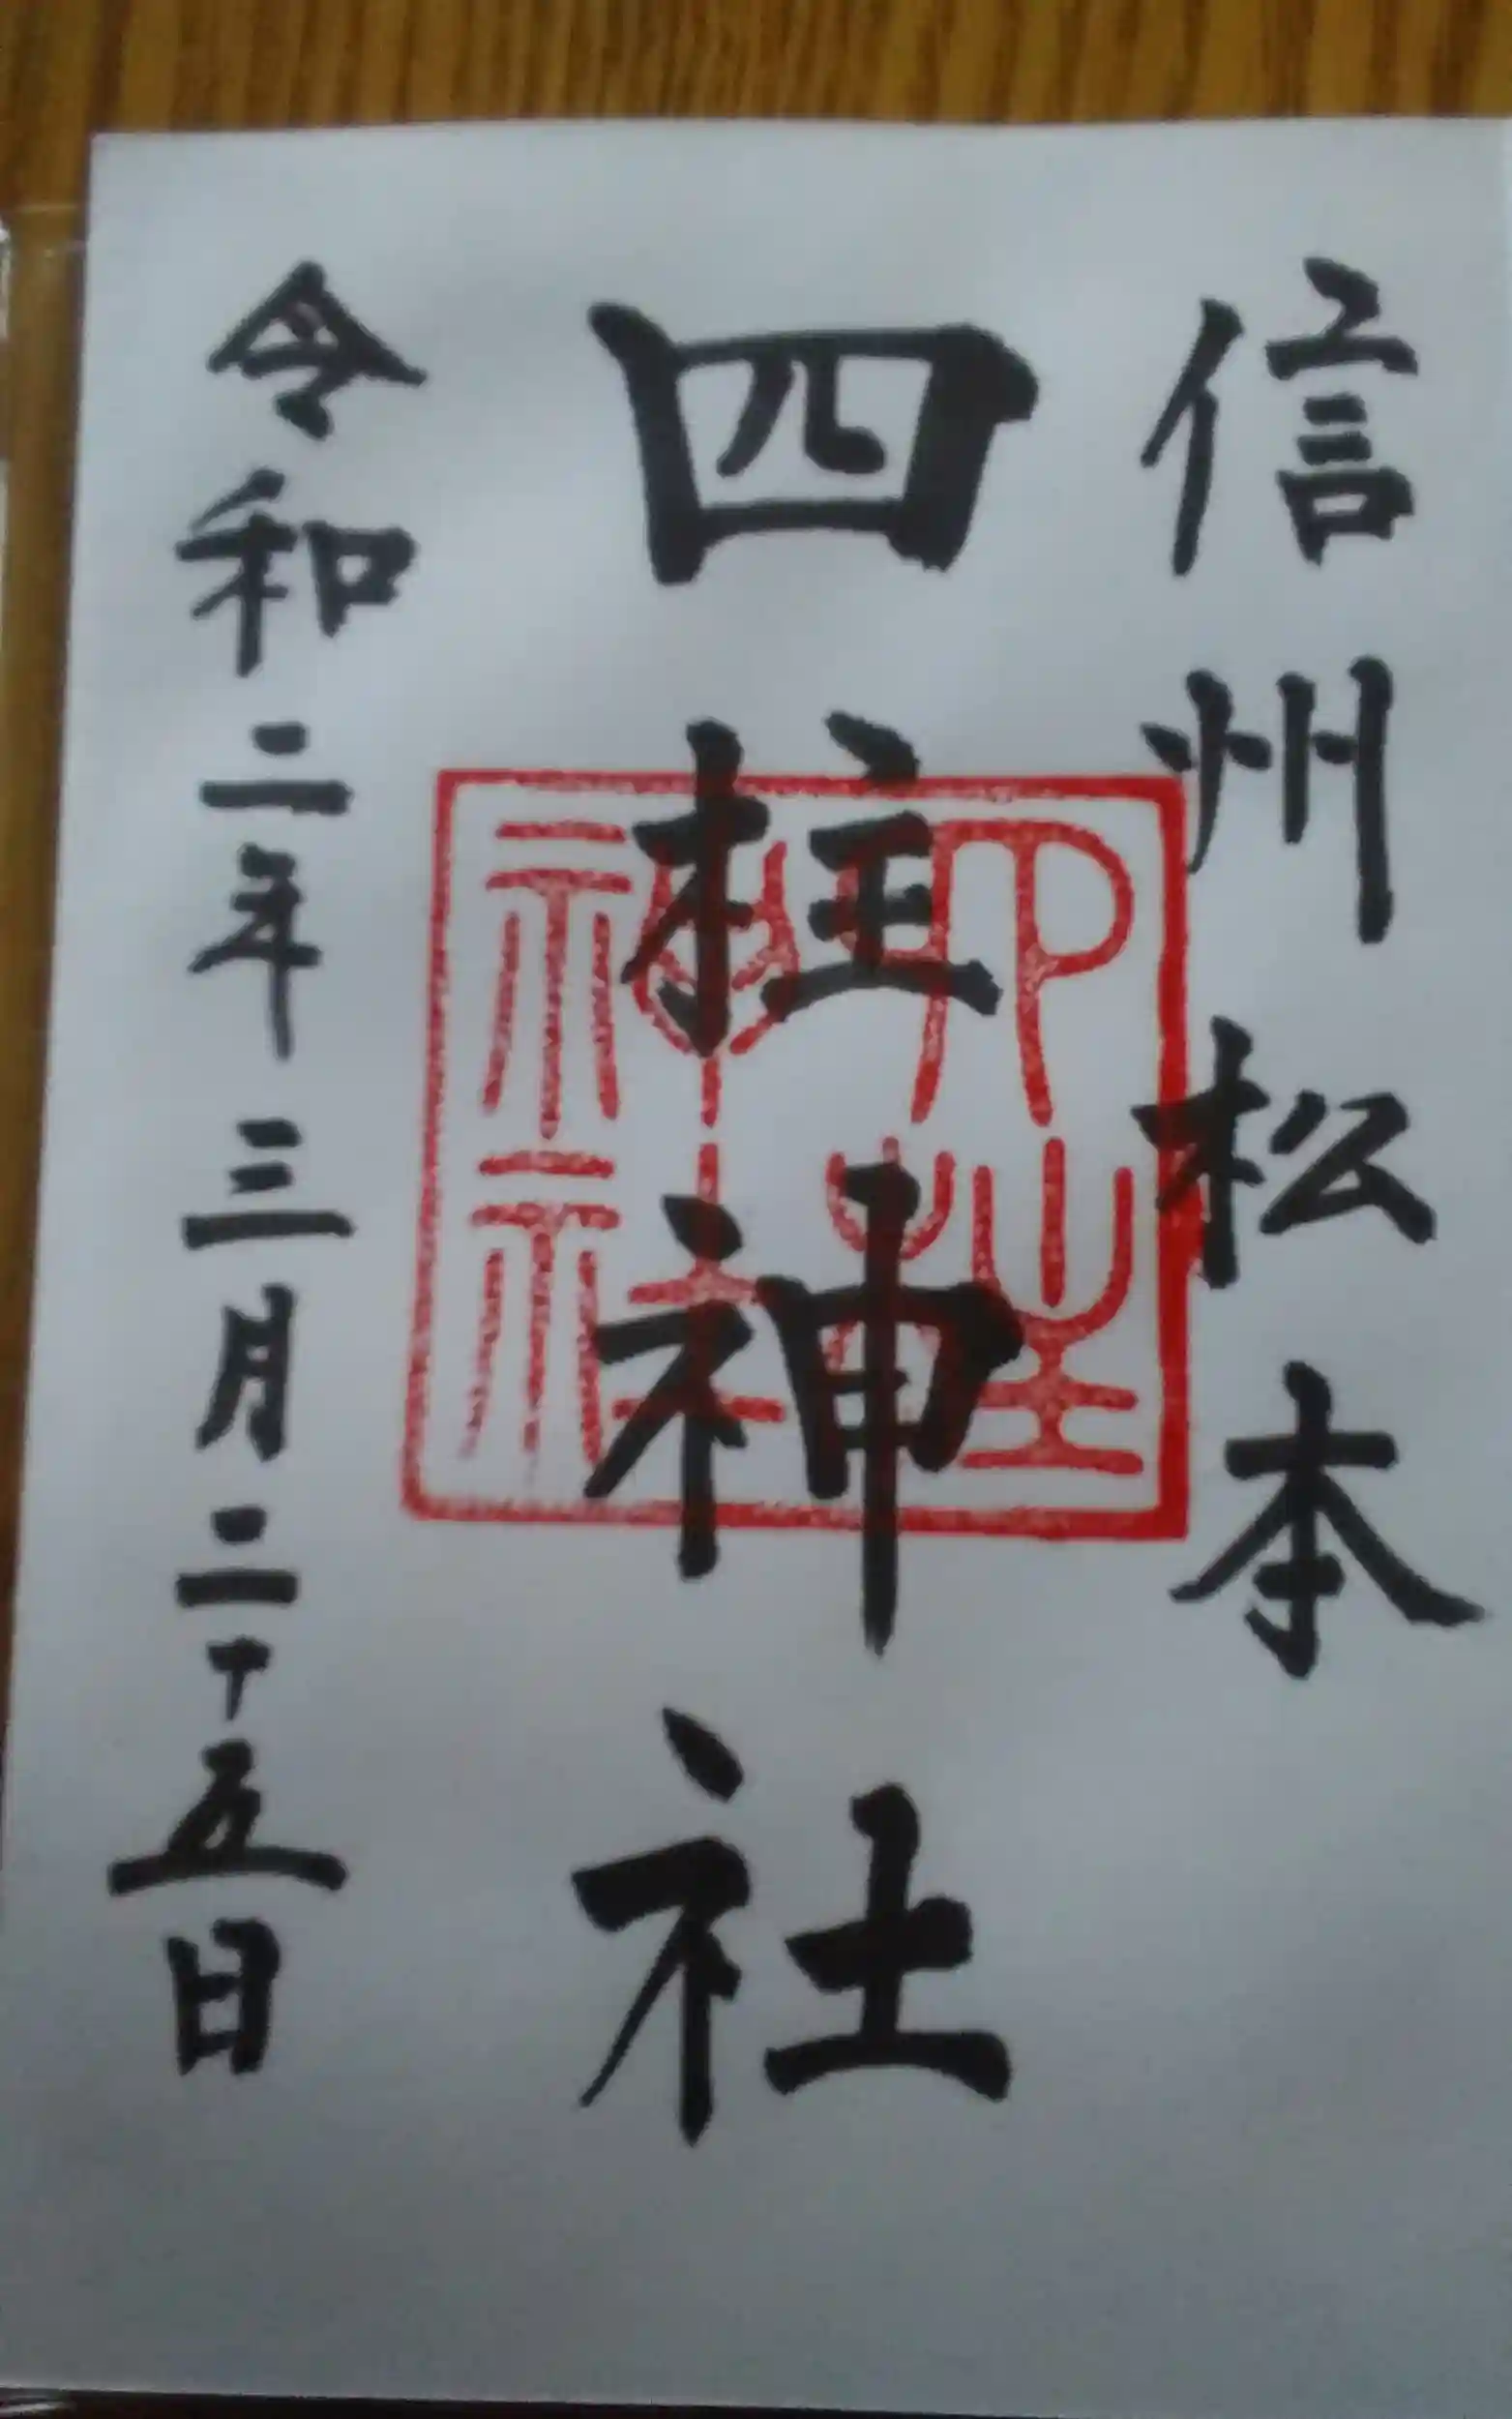 信州松本
四柱神社
令和二年三月二十五日